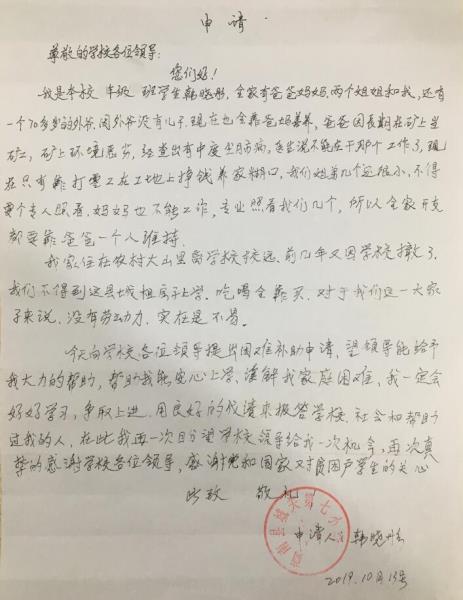 申请
尊敬的学校各位领导:
您们好!
我是本校 年级 班学生韩晓彤,全家有爸爸妈妈,两个姐姐和我,还有
一个70多岁的外爷,因外爷没有儿子,现在也全靠爸妈养,爸爸因长期在矿上当
矿工,矿上环境恶劣,经查出有中度尘肺病,医生说不能在干那个工作了,现
在只有靠打零工在工地上挣钱养家糊口,我们姐弟几个还很小,不得
要个专人照看,妈妈也不能工作,专业照看我们几个,所以全家开支
都要靠爸爸一个人维持.
我家住在农村大山里离学校较远,前几年又因学校撤了,
我们不得不到这县城租房子上学.吃喝全靠买.对于我们这一大家
子来说,没有劳动力.实在是不易.
今天向学校各位领导提出困难补助申请,望领导能给予
我大力的帮助,帮助我能安心上学,缓解我家庭困难,我一定会
好好学习,争取上进.用良好的成绩来报答学校.社会和帮助
过我的人,在此我再一次日分望学校领导给我一次机会,再次真
挚的感谢学校各位领导,感谢党和国家对贫困户学生的关心
此致 敬礼
申请人 韩晓
2019.10月15号